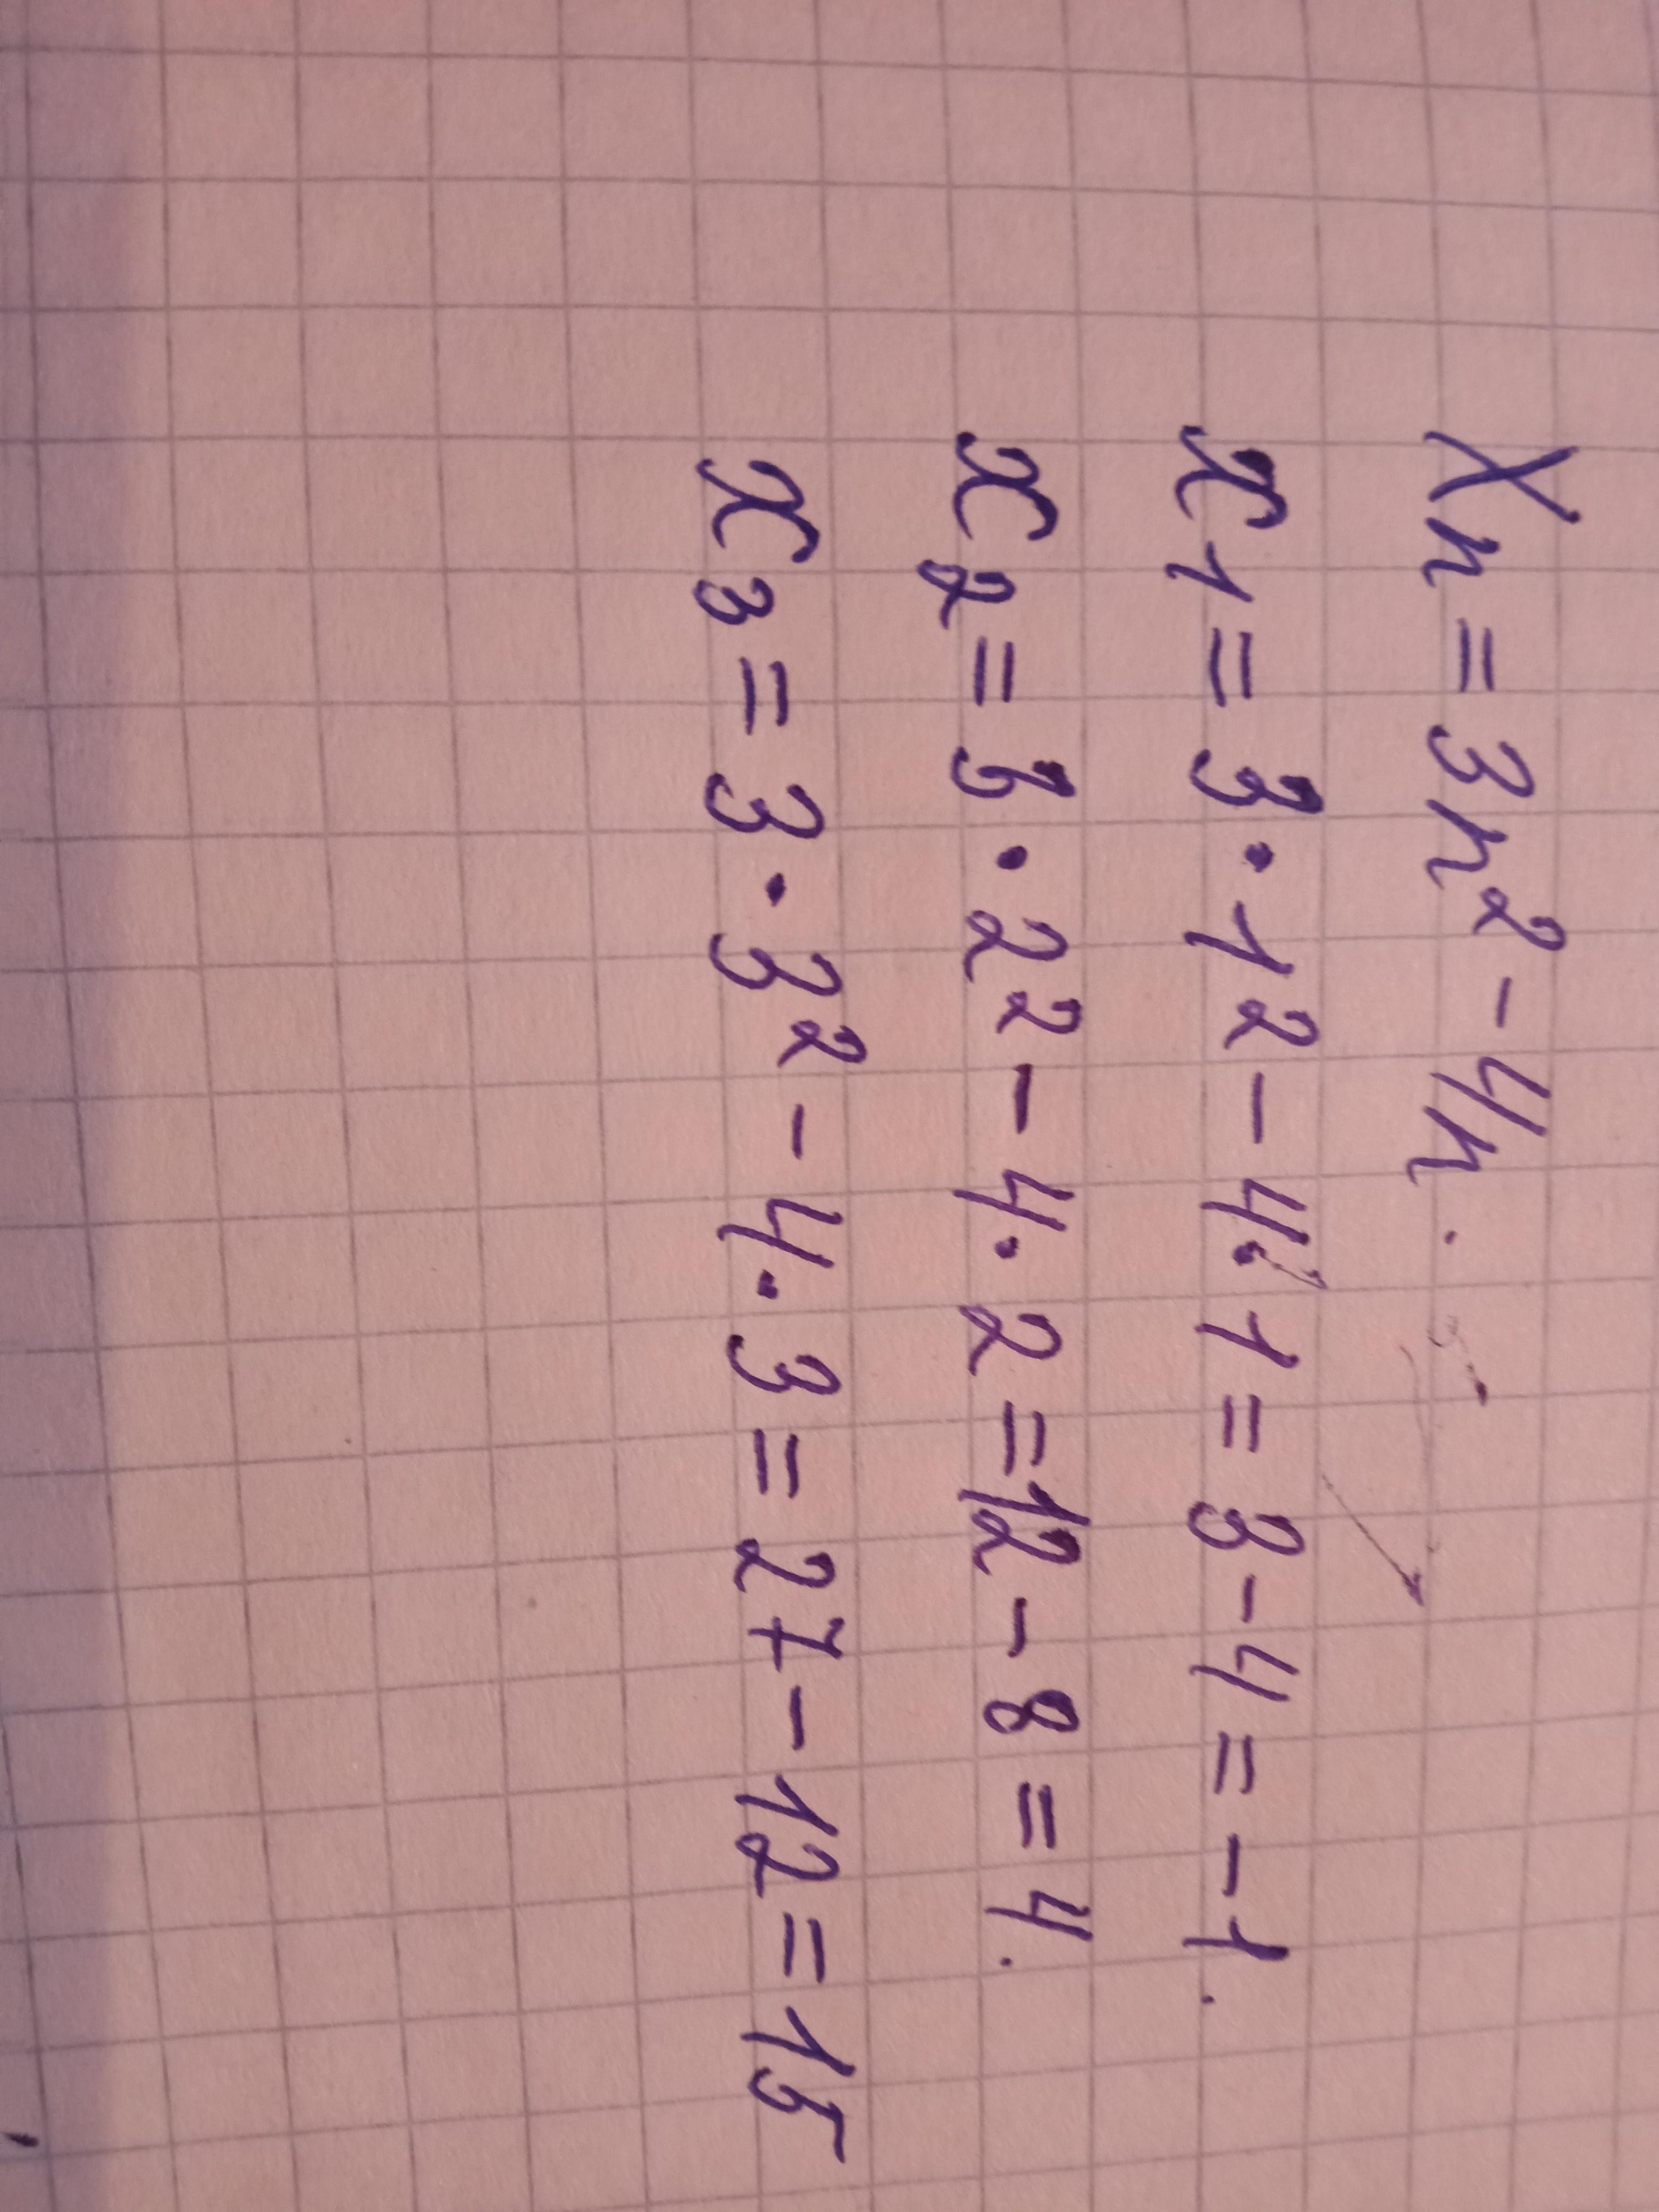 Xn = 3n² - 4n.
x1 = 3 · 1² - 4 · 1 = 3 - 4 = -1.
x2 = 3 · 2² - 4 · 2 = 12 - 8 = 4.
x3 = 3 · 3² - 4 · 3 = 27 - 12 = 15